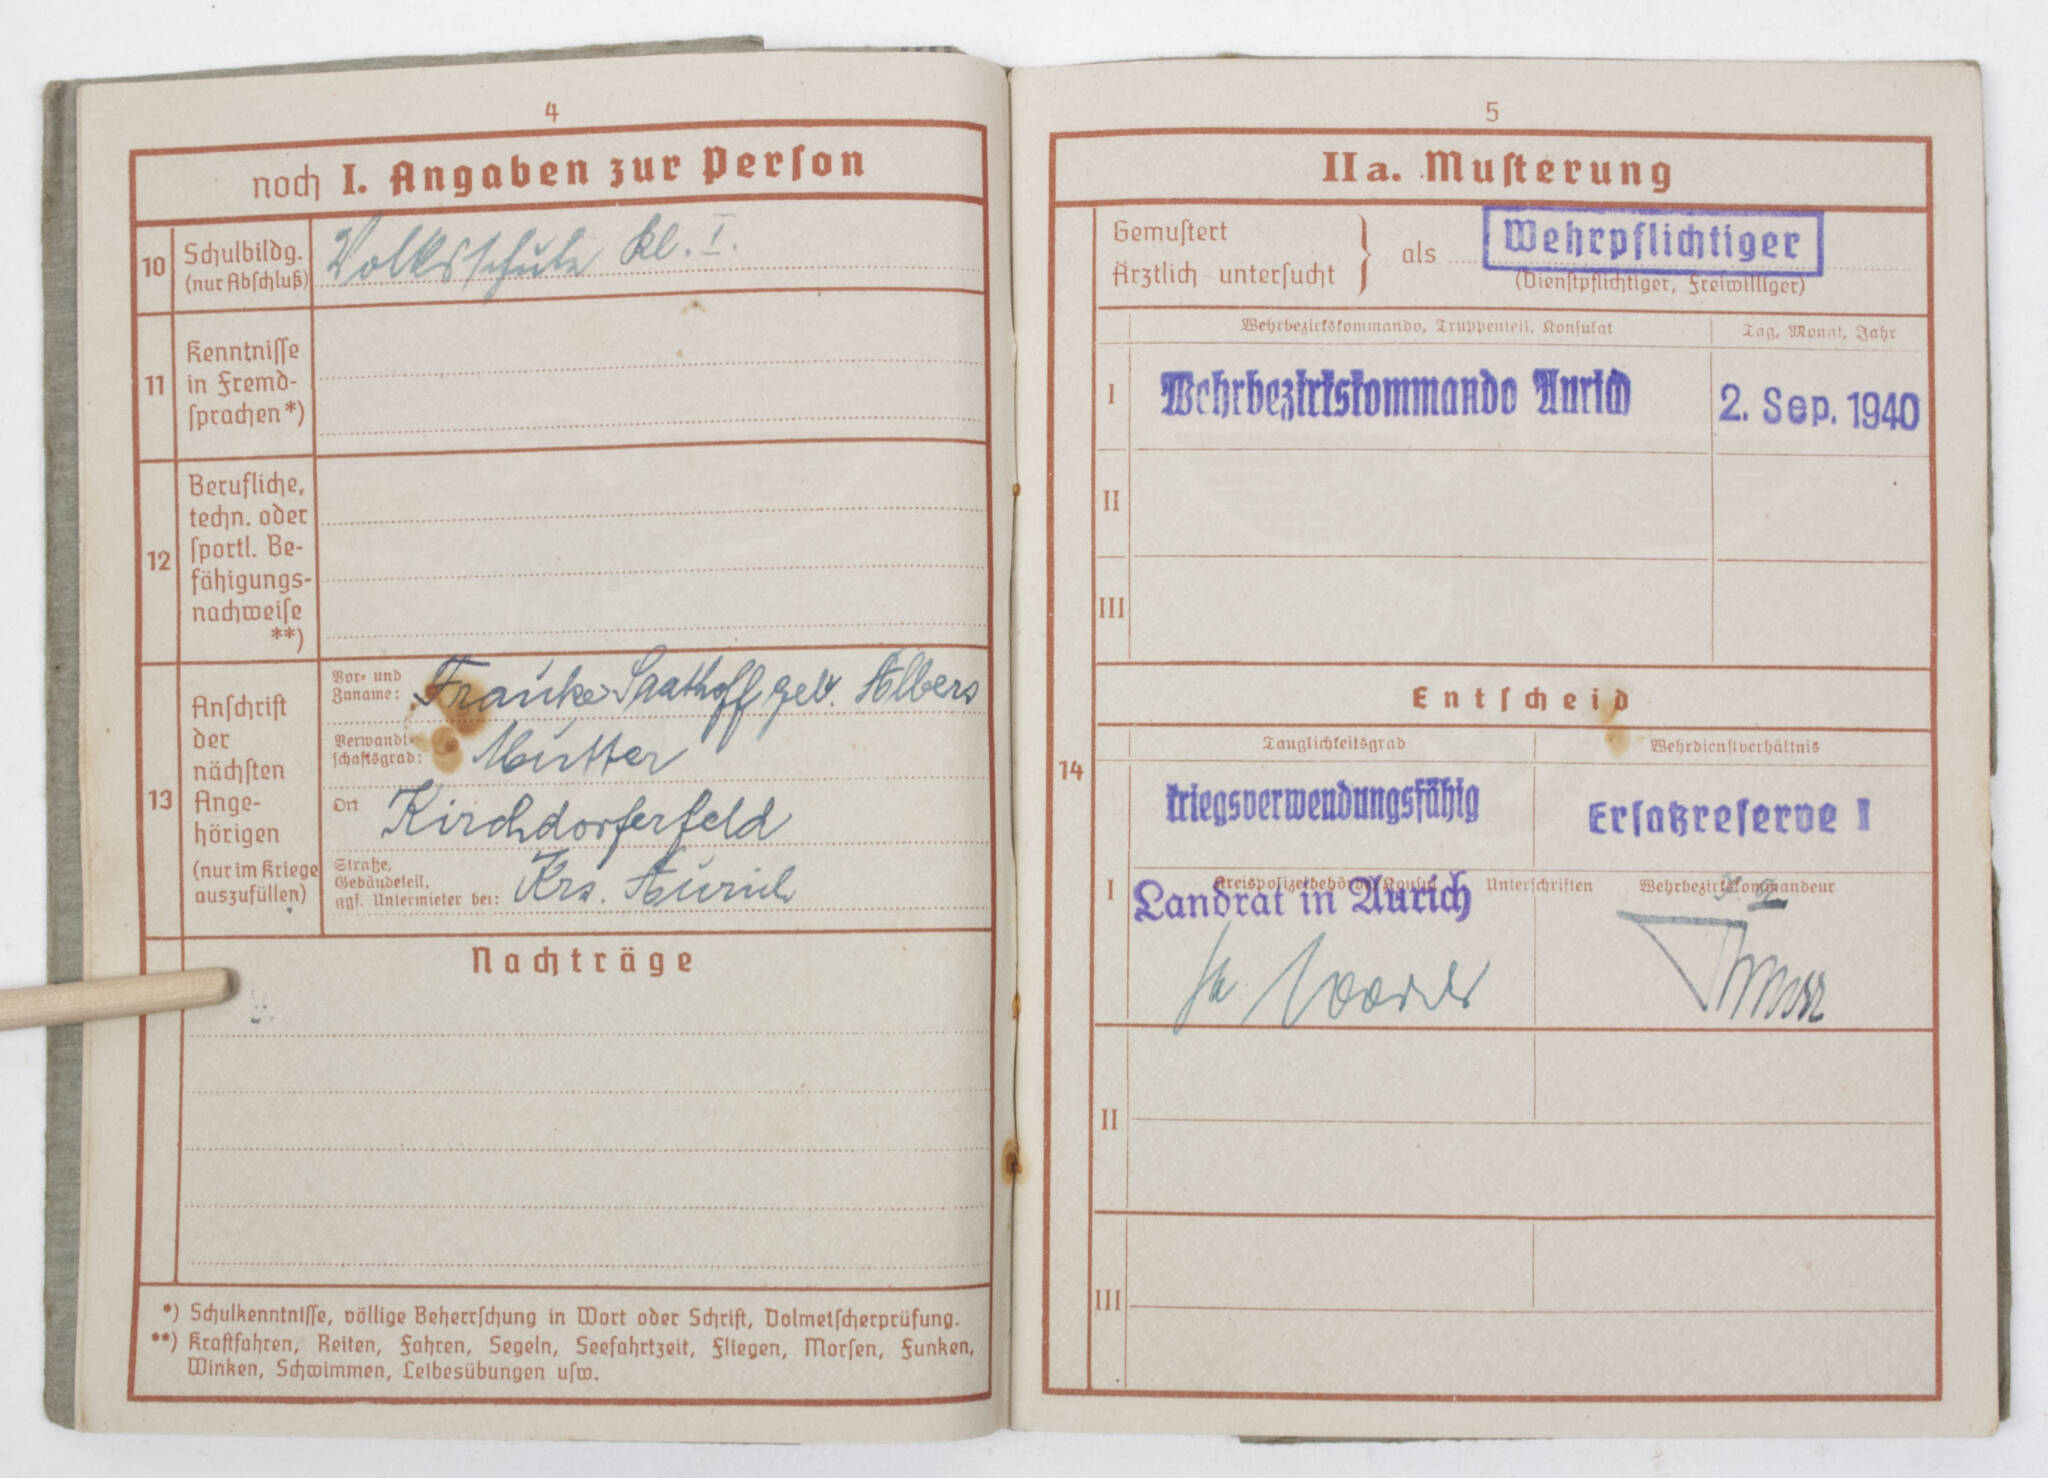 4
noch I. Angaben zur Person
10 Schulbildg. (nur Abschluß)
Volksschule Kl. I.
11 Kenntnisse in Fremd-
sprachen *)
12 Berufliche,
techn. oder
sportl. Be-
fähigungs-
nachweise
**)
13 Anschrift
der
nächsten
Ange-
hörigen
(nur im Kriege
auszufüllen)
Vor- und
Zuname: Frauke Saathoff geb. Albers
Verwandt-
schaftsgrad: Mutter
Ort Kirchdorferfeld
Straße,
Gebäudeteil,
ggf. Untermieter bei: Krs. Aurich
Nachträge
*) Schulkenntnisse, völlige Beherrschung in Wort oder Schrift, Dolmetscherprüfung.
**) Kraftfahren, Reiten, Fahren, Segeln, Seefahrtzeit, Fliegen, Morsen, Funken,
Winken, Schwimmen, Leibesübungen usw.
5
IIa. Musterung
14
Gemustert
Ärztlich untersucht } als Wehrpflichtiger
(Dienstpflichtiger, Freiwilliger)
Wehrbezirkskommando, Truppenteil, Konsulat Tag, Monat, Jahr
I Wehrbezirkskommando Aurich 2. Sep. 1940
II
III
Entscheid
Tauglichkeitsgrad Wehrdienstverhältnis
I kriegsverwendungsfähig Ersatzreserve I
Kreispolizeibehörde, Konsul Unterschriften Wehrbezirkskommandeur
Landrat in Aurich
II
III